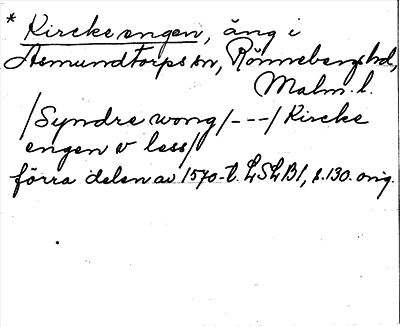 * Kirckeengen, äng i
Asmundtorps sn, Rönnebergs hd,
Malm. l.
/Syndre wong/---/Kircke
engen v less/
förra delen av 1570-t. LSLB1, s. 130. orig.